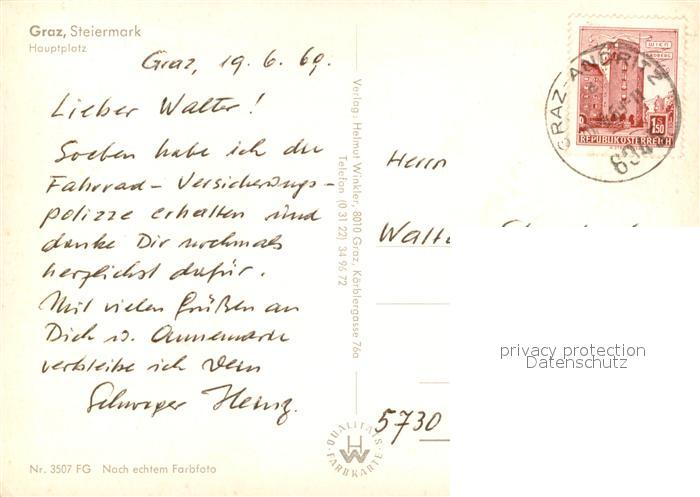 Graz, Steiermark
Hauptplatz
Graz, 19. 6. 69.
Lieber Walter!
Soeben habe ich die
Fahrrad-Versicherungs-
polizze erhalten und
danke Dir nochmals
herzlichst dafür.
Mit vielen Grüßen an
Dich u. Annemarie
verbleibe ich Dein
Schwager Heinz.
Nr. 3507 FG Nach echtem Farbfoto
Verlag: Helmut Winkler, 8010 Graz, Körblergasse 76a
Telefon (0 31 22) 34 96 72
QUALITÄTS-
FARBKARTE
HW
WIEN
1.50
S
REPUBLIK ÖSTERREICH
GRAZ-ANDRITZ
Herrn
5730
privacy protection
Datenschutz